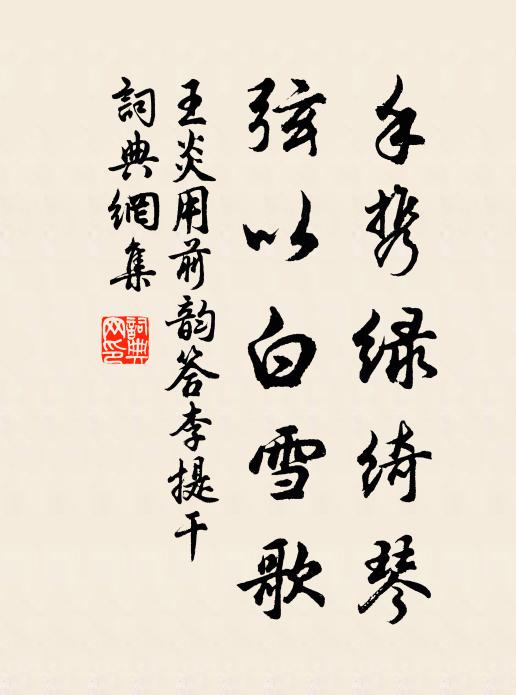 手携绿绮琴
弦以白雪歌
王炎用前韵答李提干
詞典網集
詞典网印